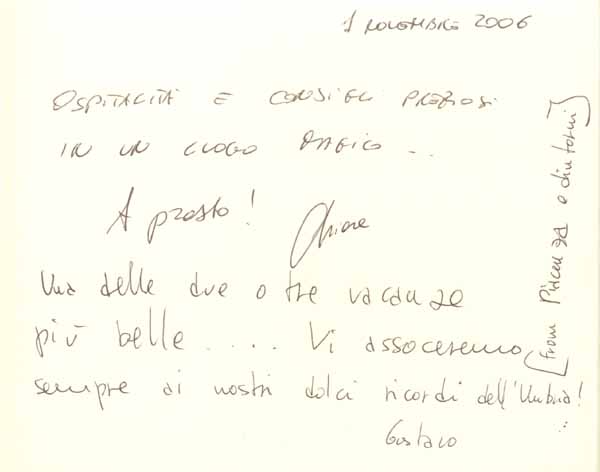 1 NOVEMBRE 2006
OSPITALITÀ E CONSIGLI PREZIOSI
IN UN LUOGO MAGICO ...
A presto! Chiara
Una delle due o tre vacanze
più belle .... Vi assoceremo
sempre ai nostri dolci ricordi dell'Umbria!
Gustavo
[from Piacenza e dintorni]